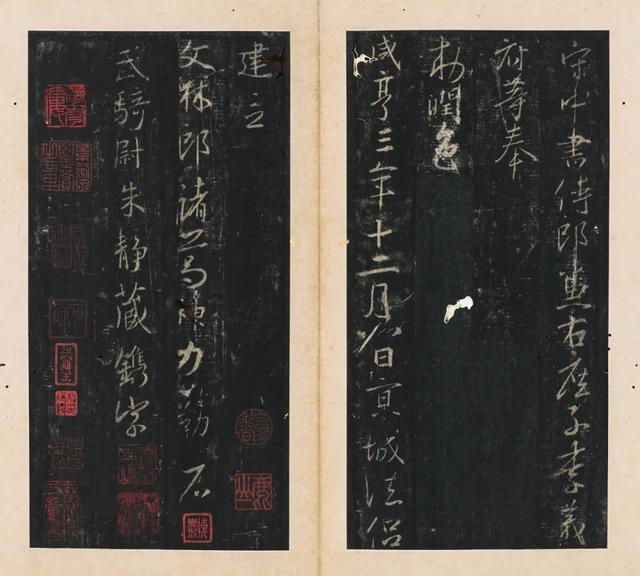 守中書侍郎兼右庶子李義
府等奉
勅潤色
咸亨三年十二月八日京城法侶
建立
文林郎諸葛神力勒石
武騎尉朱静藏鐫字